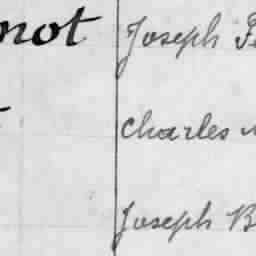 not Joseph
Charles
Joseph B